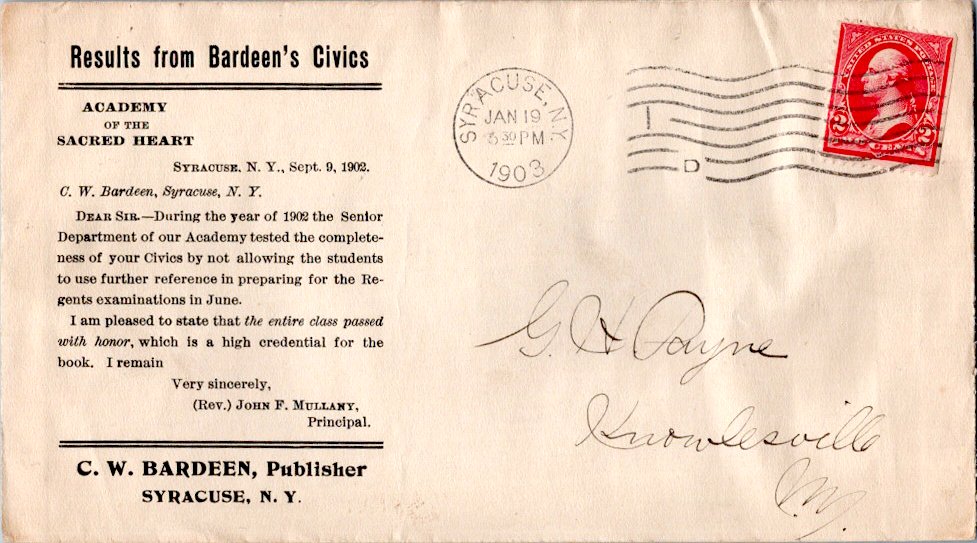 Results from Bardeen's Civics
ACADEMY
OF THE
SACRED HEART
SYRACUSE, N. Y., Sept. 9, 1902.
C. W. Bardeen, Syracuse, N. Y.
DEAR SIR.—During the year of 1902 the Senior
Department of our Academy tested the complete-
ness of your Civics by not allowing the students
to use further reference in preparing for the Re-
gents examinations in June.
I am pleased to state that the entire class passed
with honor, which is a high credential for the
book. I remain
Very sincerely,
(Rev.) JOHN F. MULLANY,
Principal.
C. W. BARDEEN, Publisher
SYRACUSE, N. Y.
SYRACUSE, N.Y.
JAN 19
30 PM
1903
I
D
UNITED STATES POSTAGE
2 2
G. H. Payne
Knowlesville
N.Y.